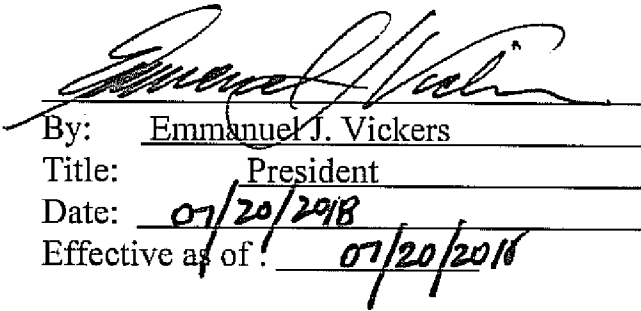 Emmanuel J Vickers
By: Emmanuel J. Vickers
Title: President
Date: 07/20/2018
Effective as of : 07/20/2018